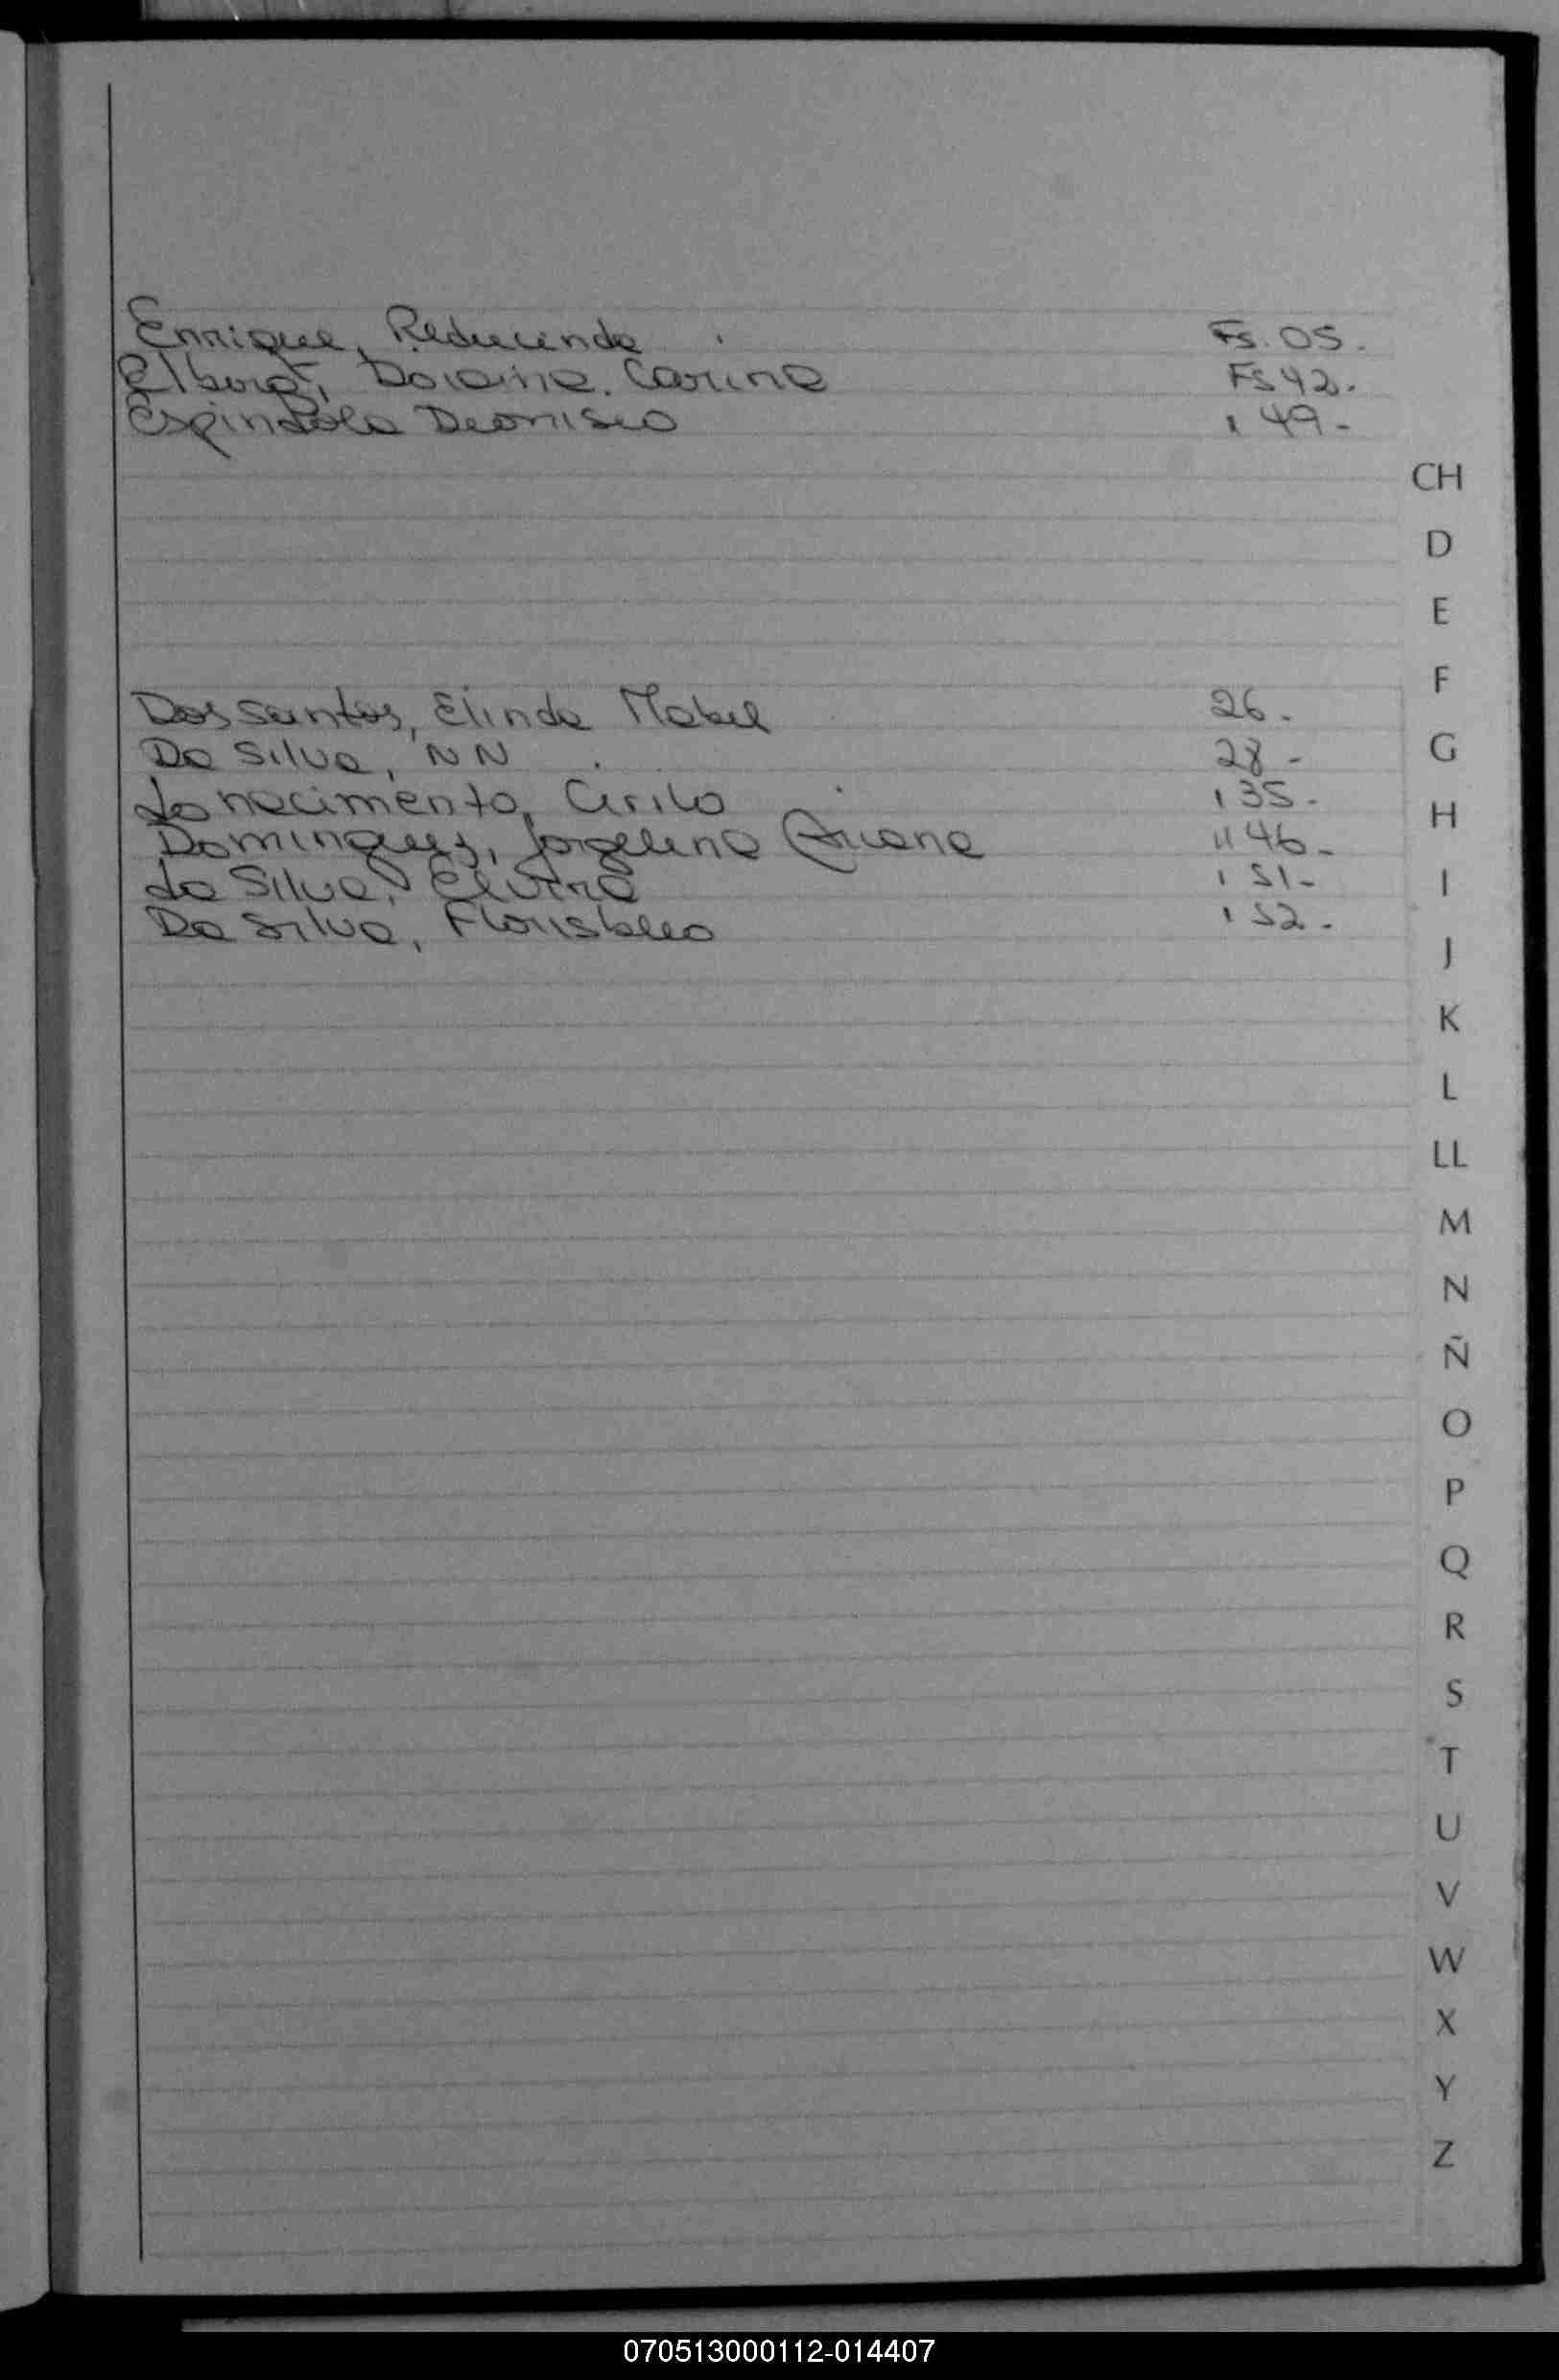 Enrique, Reducinda Fs. 05.
Elborst, Daiana. Carina Fs 42.
Espindola Deonisio 49.
CH
D
E
F
Dos santos, Elinda Mabel 26.
Da Silva, NN 28-
G
do nacimento, Cirilo 35.
H
Dominguez, Jorgelina " 46-
da Silva, Elvira 51-
I
Da Silva, 52.
J
K
L
LL
M
N
Ñ
O
P
Q
R
S
T
U
V
W
X
Y
Z
070513000112-014407